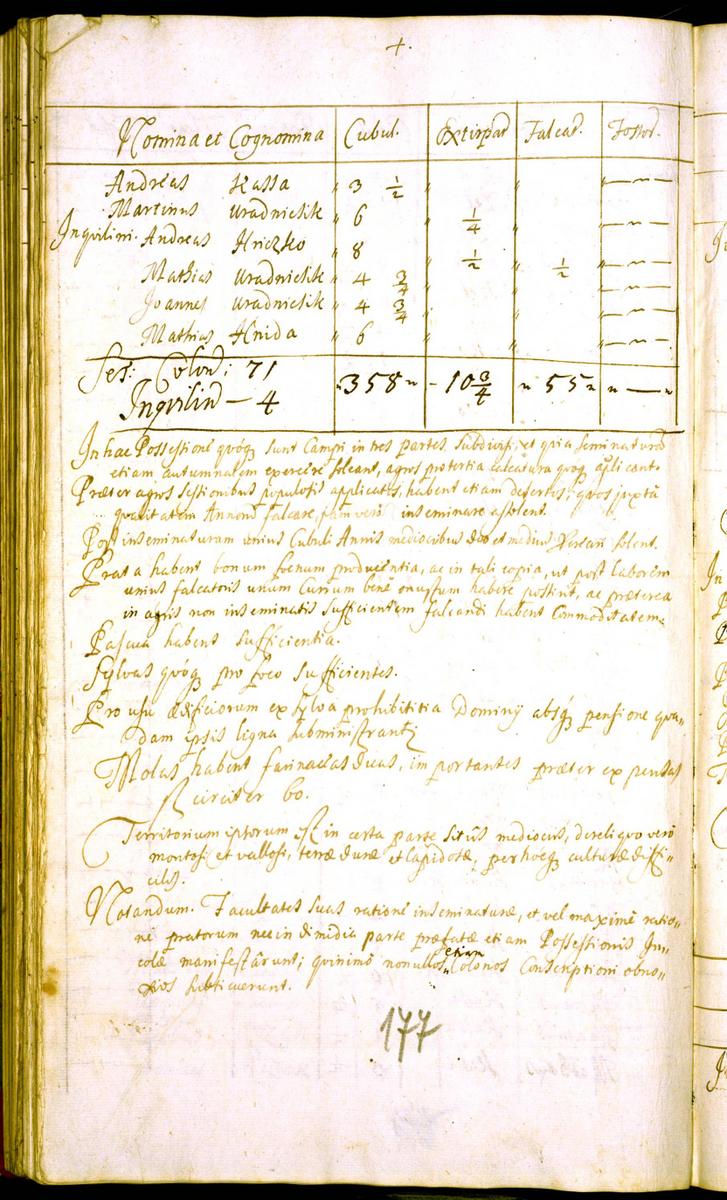 +.
Nomina et Cognomina Cubul. Extirpat Falcat. Fossor.
Andreas Kassa " 3 1/2 " " " — ~ —
Martinus Uradnicsik " 6 " 1/4 " " — ~ —
Inquilini. Andreas Hriczko " 8 " 1/2 " 1/2 " — ~ —
Mathias Uradnicsik " 4 3/4 " " " — ~ —
Joannes Uradnicsik " 4 3/4 " " " — ~ —
Mathias Hnida " 6 " " " — ~ —
Colon; 71
Inquilin — 4 " 358 " - 10 3/4 " 55 " " — "
In hac Possessione quoq sunt Campi in tres partes subdivisi, et quia seminaturas
etiam autumnalem exercere soleant, agros pro tertia calcatura quoq
Præter agros sessionibus populosis applicatos, habent etiam desertos, quos juxta
qualitatem Annonæ falcare, jam vero inseminare assolent.
Post inseminaturam unius Cubuli Annis mediocribus duo et medius solent.
Prata habent bonum foenum producentia, ac in tali copia, ut post laborem
unius falcatoris unum Currum bene onustum habere possint, ac præterea
in agris non inseminatis sufficientem falcandi habent Commoditatem.
Pascua habent sufficientia.
Sylvas quoq pro foco sufficientes.
Pro usu ædificiorum ex sylva prohibititia Dominij absq pensione qua=
dam ipsis ligna subministrant
Molas habent farinaceas duas, importantes præter expensas
fl circiter 60.
Territorium istorum est in certa parte situs mediocris, de reliquo vero
montosi et vallosi, terræ duræ et lapidosæ, per hocq culturæ diffi=
cilis.
Notandum. Facultates suas ratione inseminaturæ, et vel maxime ratio=
ne pratorum nec in dimidia parte præfatæ etiam Possessionis In=
colæ manifestârunt; quinimo nonullos etiam Colonos Conscriptioni obno=
xios subticuerunt.
177